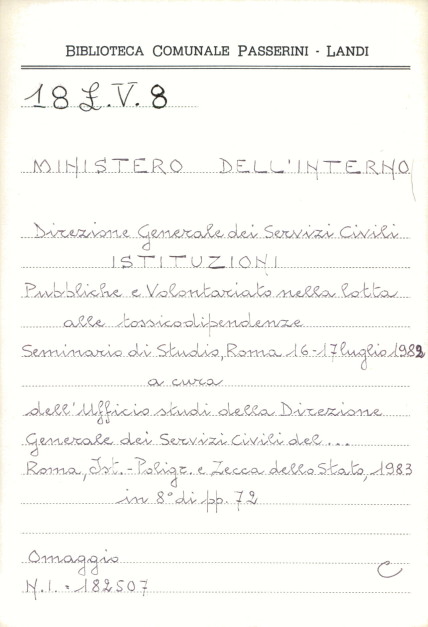 BIBLIOTECA COMUNALE PASSERINI - LANDI
18 L.V. 8
MINISTERO DELL'INTERNO
Direzione Generale dei Servizi Civili
ISTITUZIONI
Pubbliche e Volontariato nella lotta
alle tossicodipendenze
Seminario di Studio, Roma 16-17 luglio 1982
a cura
dell'Ufficio studi della Direzione
Generale dei Servizi Civili del...
Roma, Ist.-Poligr. e Zecca dello Stato, 1983
in 8° di pp. 72
Omaggio
C
N.I. = 182507